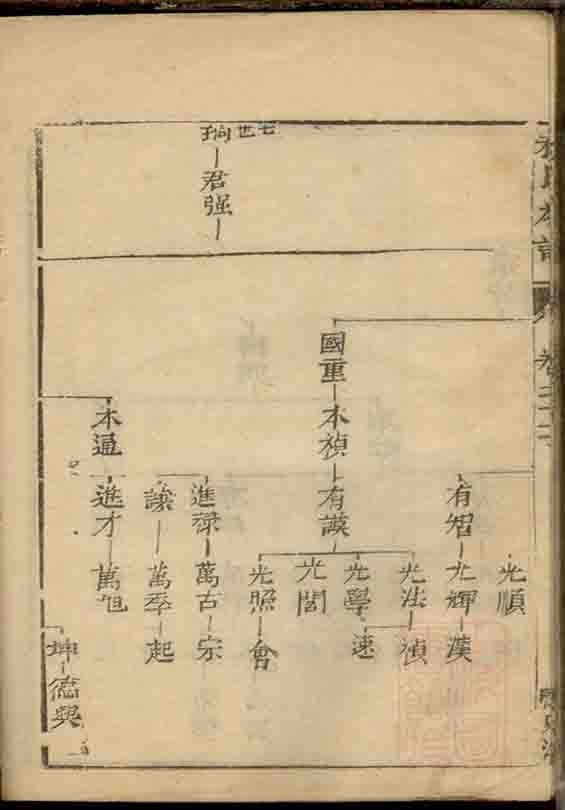 世
珦
君强
國重
本禎
有謨
光順
有智
光輝
漢
光法
禎
光學
速
光閣
光照
會
進祿
萬古
宗
萬季
起
本通
進才
萬
坤
德興